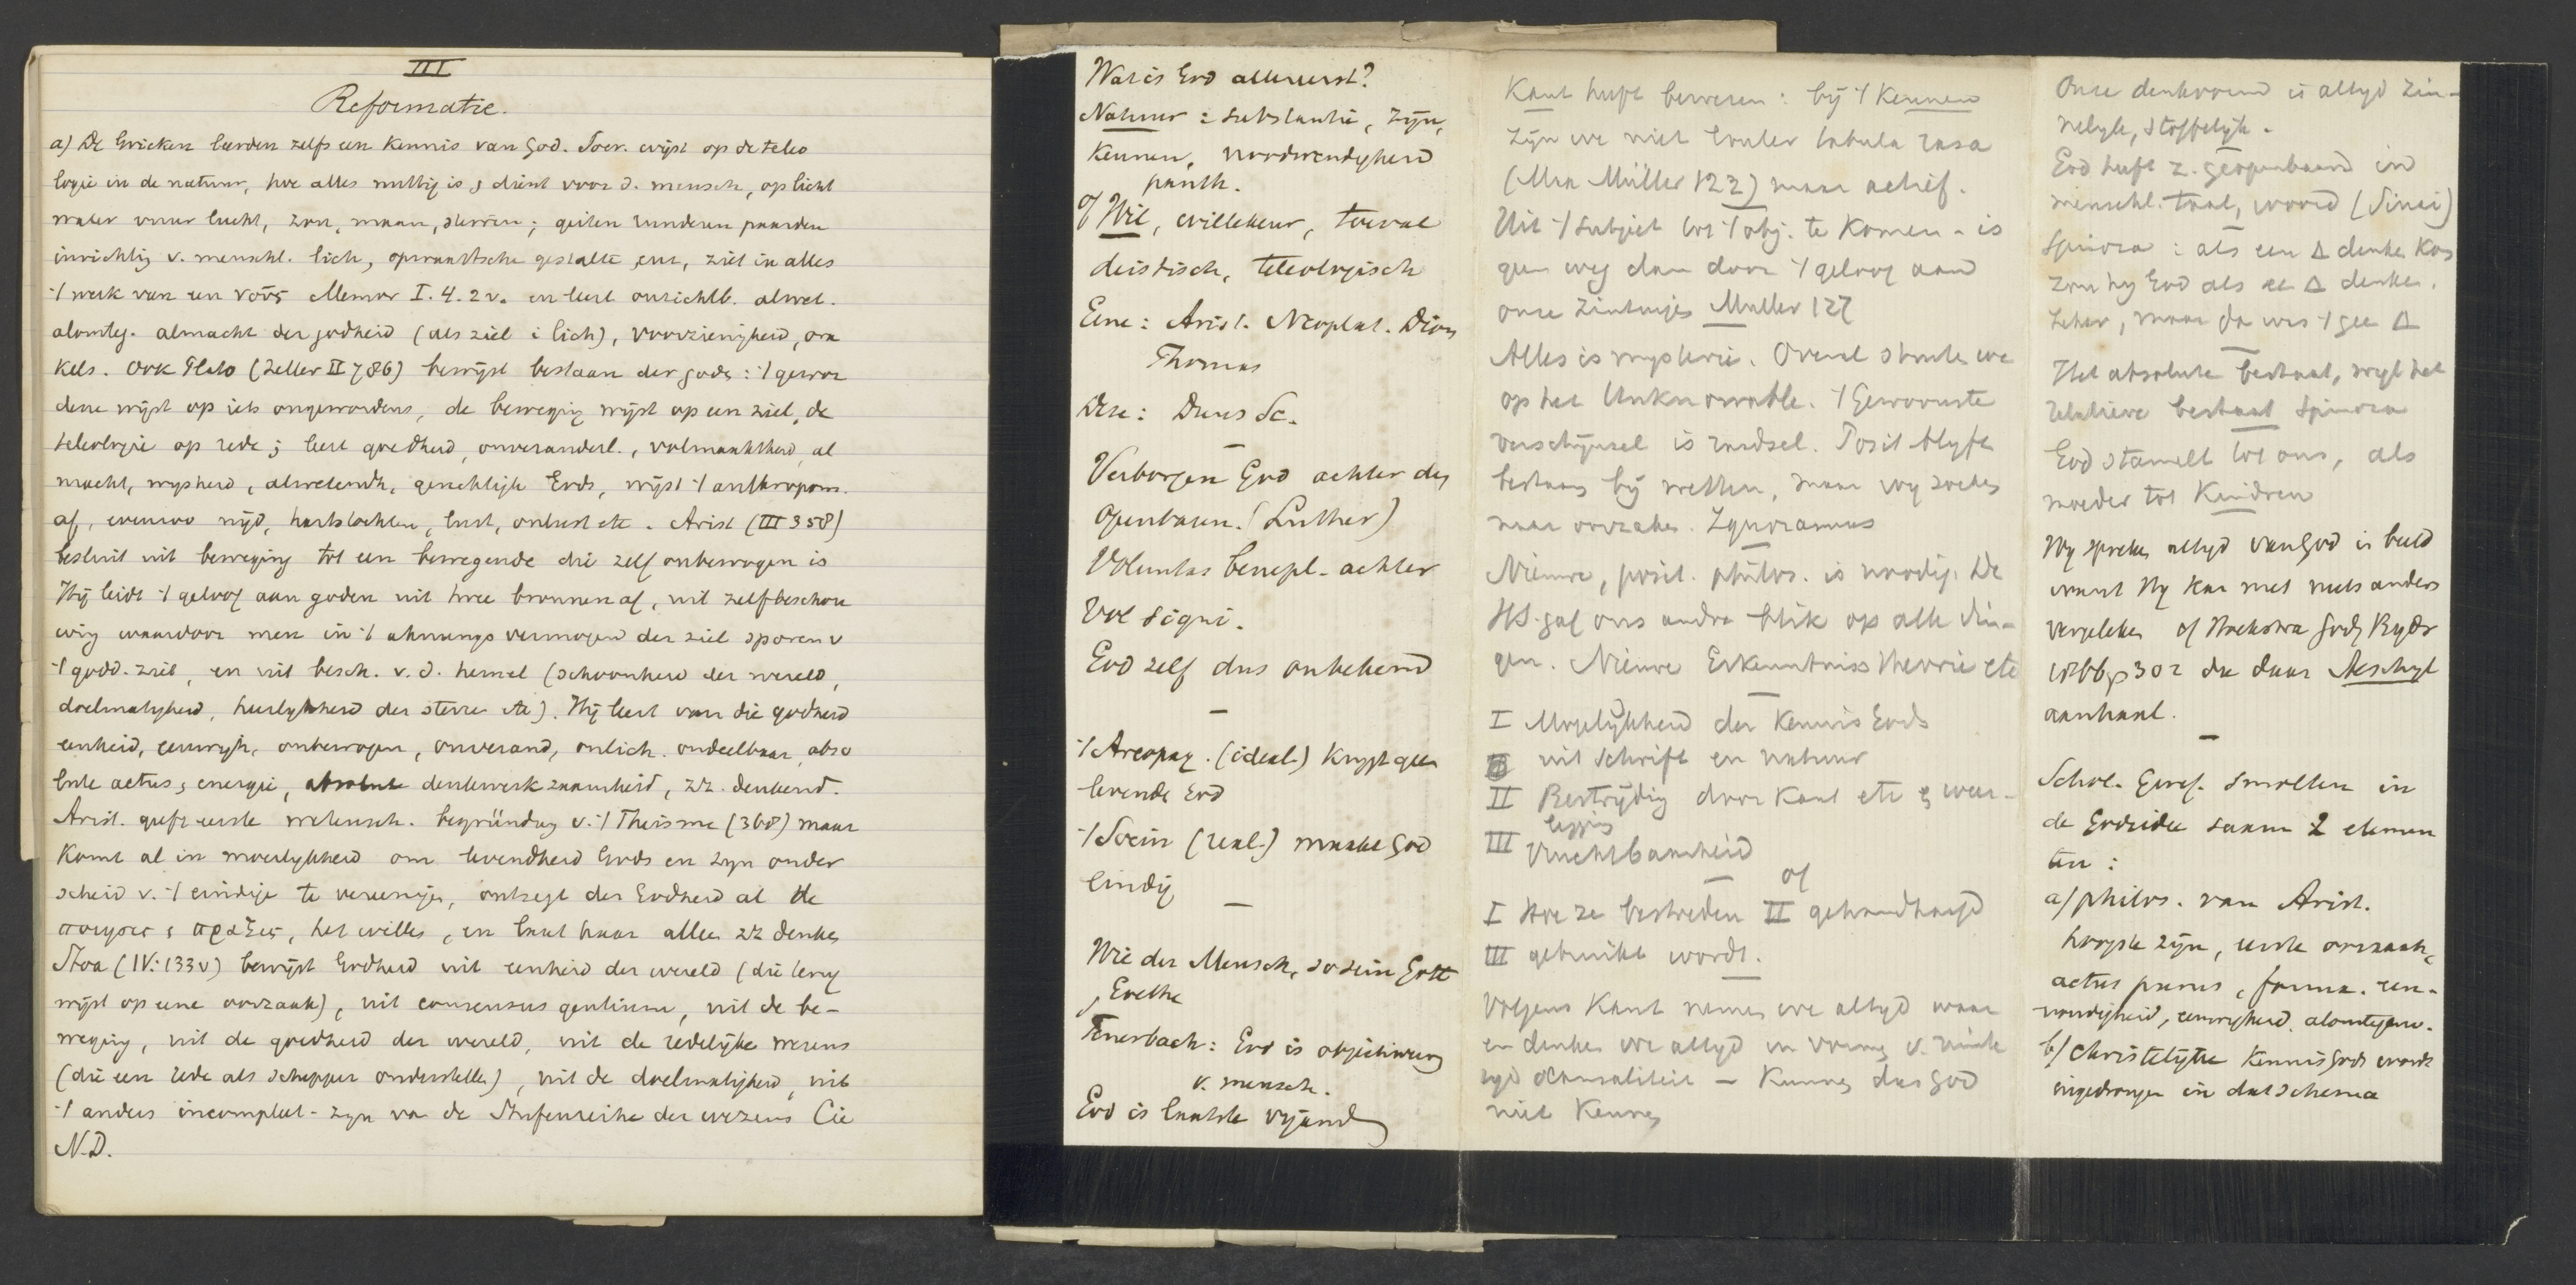 III
Reformatie.
a) De Grieken leerden zelfs een Kennis van God. Socr. wijst op de teleo
logie in de natuur, hoe alles nuttig is & dient voor d. mensch, op licht
water vuur lucht, zon, maan, sterren; geiten runderen paarden
inrichtig v. menschl. lich, opwaartsche gestalte enz, ziet in alles
't werk van een νοῦς Memor I. 4. 2 v. en leert onzichtb. alwet.
alomteg. almacht der godheid (als ziel i lich), voorzienigheid, ora
kels. Ook Plato (Zeller II 786) bewijst bestaan der gods: 't gewor
dene wijst op iets ongewordens, de bewegig wijst op een ziel, de
teleologie op rede; leert goedheid, onveranderl., volmaaktheid, al
macht, wijsheid, alwetendh, gerechtigh Gods, wijst 't anthropom.
af, evenzoo nijd, hartstochten, lust, onlust etc. Arist (III 358)
besluit uit beweging tot een bewegende die zelf onbewogen is
Hij leidt 't geloof aan goden uit twee bronnen af, uit zelfbeschou
wig waardoor men in 't ahnungs vermogen der ziel sporen v
't godd. ziet, en uit besch. v. d. hemel (schoonheid der wereld,
doelmatigheid, heerlijkheid der sterre etc). Hij leert van die godheid
eenheid, eeuwigh, onbewogen, onverand, onlich. ondeelbaar, abso
lute actus, energie, absolute denkwerkzaamheid, zz. denkend.
Arist. geeft eerste wetensch. begründung v. 't Theisme (368) maar
komt al in moeilijkheid om levendheid Gods en zijn onder
scheid v. 't eindige te vereenige, ontzegt der Godheid al de
ποιησις & πραξις, het wille, en laat haar allee zz denke
Stoa (IV: 133 v) bewijst Godheid uit eenheid der wereld (die terug
wijst op eene oorzaak), uit consensus gentium, uit de be-
weging, uit de goedheid der wereld, uit de redelijke wezens
(die een rede als schepper onderstelle), uit de doelmatigheid, uit
't anders incompleet-zijn van de Stufenreihe der wezens Cic
N.D.
Wat is God allereerst?
Natuur: substantie, zijn,
kennen, noodwendigheid
panth.
of Wil, willekeur, toeval
deistisch, teleologisch
Eene: Arist. Neoplat. Dion
Thomas
Deze: Duns Sc.
Verborgen God achter den
openbaren. (Luther)
Voluntas benepl. achter
Vol signi.
God zelf dus onbekend
't Areopag. (ideal.) krijgt geen
levende God
't Socin (real.) maakt God
eindig
Wie der Mensch, so sein Gott
Goethe
Feuerbach: God is objectivering
v. mensch.
God is laatste vijand
Kant heeft bewezen: bij 't kennen
zijn we niet louter tabula rasa
(Max Müller 122) maar actief.
Uit 't subject tot 't obj. te komen - is
geen weg dan door 't geloof aan
onze zintuigen Muller 127
Alles is mysterie. Overal stuite we
op het Unknowable. 't Gewoonste
verschijnsel is raadsel. Posit blijft
bestaan bij wetten, maar wij zoeken
naar oorzaken. Ignoramus
Nieuwe, posit. philos. is noodig. De
HS. gaf ons andre blik op alle din-
gen. Nieuwe Erkenntniss theorie etc
I Mogelijkheid der Kennis Gods
uit Schrift en natuur
II Bestrijdig door Kant etc & weer-
legging
III Vruchtbaarheid
of
I Hoe ze bestreden II gehandhaafd
III gebruikt wordt.
Volgens Kant nemen we altijd waar
en denken we altijd in vorme v. ruimte
tijd causaliteit - Kunnen dus God
niet kennen
Onze denkvorm is altijd zin-
nelijk, stoffelijk.
God heeft z. geopenbaard in
menschl. taal, woord (Sinai)
Spinoza: als een Δ denken kon
zou hij God als ee Δ denken.
Zeker, maar dan was 't gee Δ
Het absolute bestaat, wijl het
relatieve bestaat Spinoza
God stamelt tot ons, als
moeder tot Kindren
Wij spreken altijd van God in beeld
want Hij kan met niets anders
vergeleken cf Hoekstra Godg Bijdr
1866 p 302 die daar Aeschyl
aanhaal.
Schol. Geref. smolten in
de Godsidee saam 2 elemen
ten:
a) philos. van Arist.
hoogste zijn, eerste oorzaak,
actus purus, forma. een-
voudigheid, eeuwigheid, alomtegenw.
b) Christelijke kennis Gods wordt
ingedrongen in dat schema